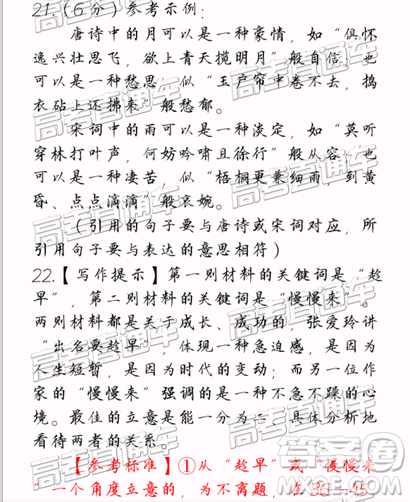 21.（6分）参考示例：
唐诗中的月可以是一种豪情，如“俱怀
逸兴壮思飞，欲上青天揽明月”般自信；也
可以是一种愁思，似“玉户帘中卷不去，捣
衣砧上还拂来”般愁郁。
宋词中的雨可以是一种淡定，如“莫听
穿林打叶声，何妨吟啸且徐行”般从容；也可
以是一种凄苦，似“梧桐更兼细雨，到黄
昏、点点滴滴”般哀婉。
（引用的句子要与唐诗或宋词对应，所
引用句子要与表达的意思相符）
22.【写作提示】第一则材料的关键词是“趁
早”，第二则材料的关键词是“慢慢来”。
两则材料都是关于成长、成功的，张爱玲讲
“出名要趁早”，体现一种急迫感，是因为
人生短暂，是因为时代的变动；而另一位作
家的“慢慢来”强调的是一种不急不躁的心
境。最佳的立意是能一分为二、具体分析地
看待两者的关系。
【参考标准】①从“趁早”或“慢慢来
”一个角度立意的，为不离题，
高考直通车
答案圈